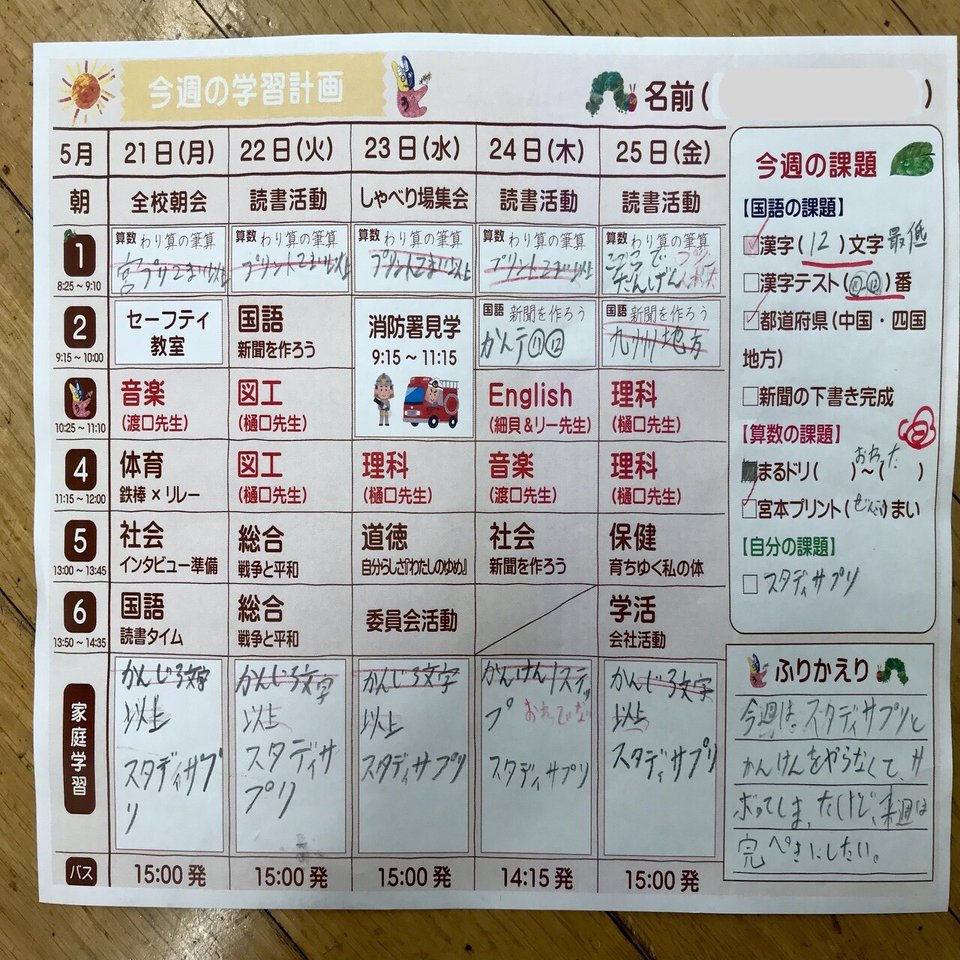 今週の学習計画
名前( )
5月 21日(月) 22日(火) 23日(水) 24日(木) 25日(金)
朝 全校朝会 読書活動 しゃべり場集会 読書活動 読書活動
1
8:25～9:10
算数 わり算の筆算
宮プリ2まい以上
算数 わり算の筆算
プリント2まい以上
算数 わり算の筆算
プリント2まい以上
算数 わり算の筆算
プリント2まい以上
算数 わり算の筆算
2
9:15～10:00
セーフティ
教室
国語
新聞を作ろう
消防署見学
9:15～11:15
国語 新聞を作ろう
かんテ⑪⑫
国語 新聞を作ろう
九州地方
10:25～11:10
音楽
(渡口先生)
図工
(樋口先生)
English
(細貝&リー先生)
理科
(樋口先生)
4
11:15～12:00
体育
鉄棒×リレー
図工
(樋口先生)
理科
(樋口先生)
音楽
(渡口先生)
理科
(樋口先生)
5
13:00～13:45
社会
インタビュー準備
総合
戦争と平和
道徳
自分らしさ『わたしのゆめ』
社会
新聞を作ろう
保健
育ちゆく私の体
6
13:50～14:35
国語
読書タイム
総合
戦争と平和
委員会活動
学活
会社活動
家庭学習
かんじ3文字
以上
スタディサプ
リ
かんじ3文字
以上
スタディサ
プリ
かんじ3文字
以上
スタディサプリ
かんけん1ステッ
プ
スタディサプリ
かんじ3文字
以上
スタディサプリ
バス 15:00発 15:00発 15:00発 14:15発 15:00発
今週の課題
【国語の課題】
漢字(12)文字 最低
漢字テスト(⑪⑫)番
都道府県(中国・四国
地方)
新聞の下書き完成
【算数の課題】
おわった
まるドリ( )～( )
宮本プリント(ぜんぶ)まい
【自分の課題】
スタディサプリ
ふりかえり
今週は、スタディサプリと
かんけんをやらなくて、サ
ボってしまったけど、来週は
完ぺきにしたい。